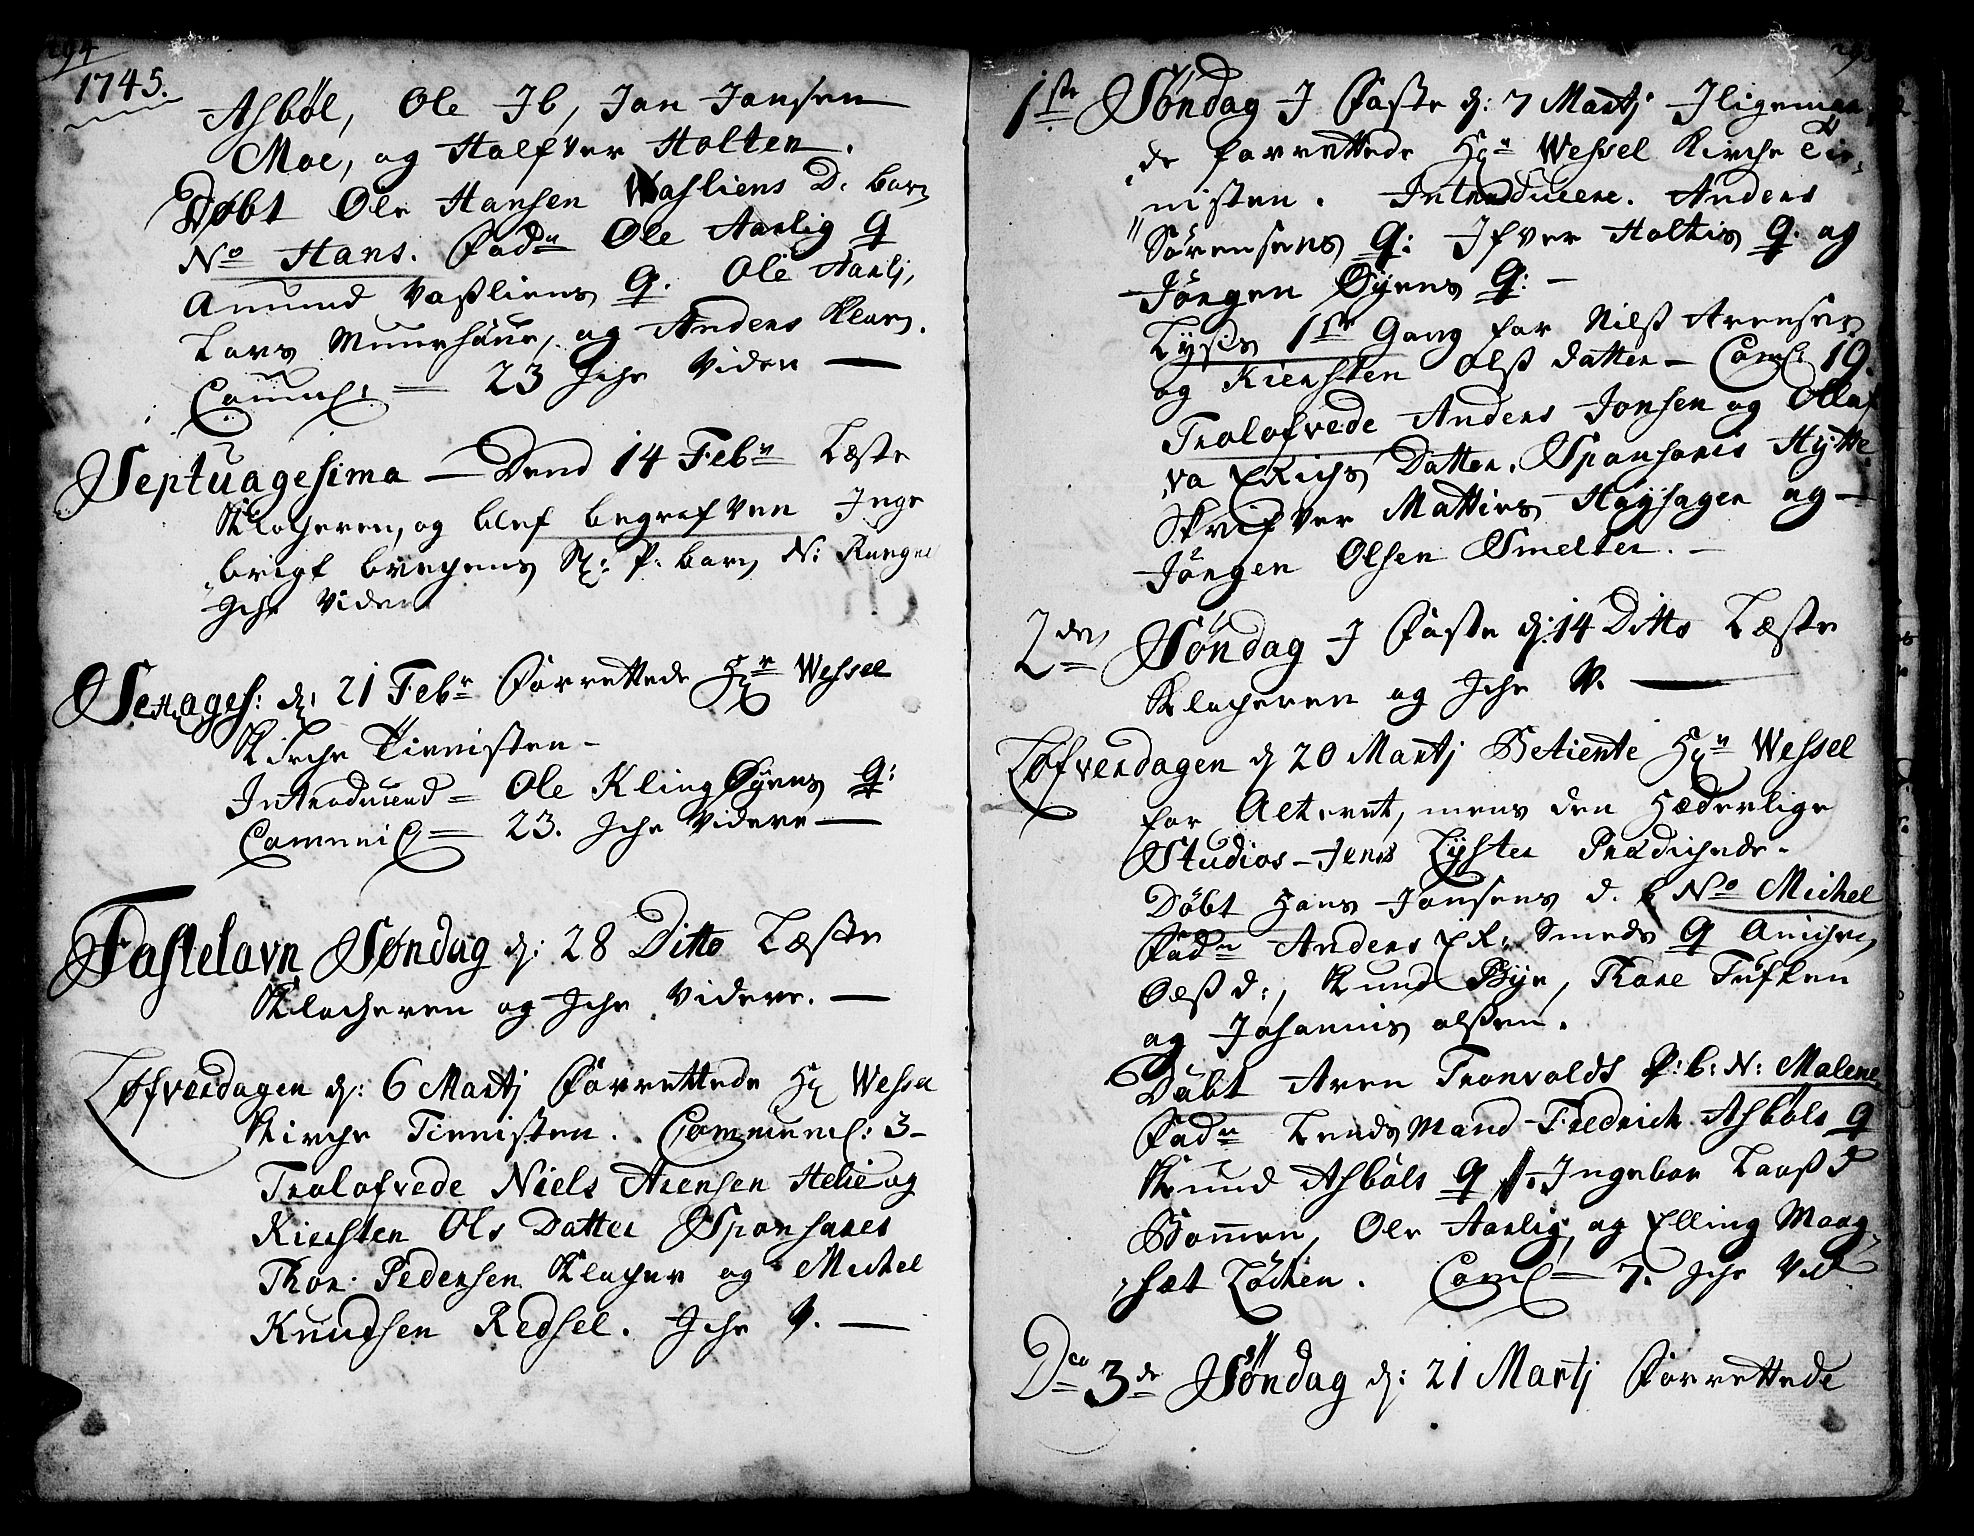 294
1745.
Asbøl, Ole Ib, Jan Jansen
Moe, og Halfver Holten.
Døbt Ole Hansen Wasliens D. barn
No Hans. Fadr Ole Aarlig Q
Amund Vasliens Q. Ole Aarli,
Lars Muurhaue, og Anders
Comuc: = 23 Iche Viden —
Septuagesima — Dend 14 Febr Læste
Klocheren, og blef begrafven Inge
brigt P. barn N:
Iche Videre
Sexages: d: 21 Febr Forrettede Hr Wessel
Kirche Tienisten —
Introducerd = Ole Kling Øyens Q:
Comunic = 23. Iche Videre —
Fastelavn Søndag d: 28 Ditto Læste
Klocheren og Iche Videre. —
Løfverdagen d: 6 Martj Forrettede Hr Wessel
Kirche Tienisten. Communic: 3 —
Trolofvede Niels Arensen Helie og
Kiersten Ols Datter Sponsores
Thor Pedersen Klocher og Michel
Knudsen Redsel. Iche V. —
1ste Søndag I Faste d: 7 Martj Iligemaa
de forrettede Hr Wessel Kirche Tie
nisten. Introducere. Anders
Sørensens Q: Ifver Holtis Q. og
Jörgen Øyens Q: —
Lyses 1ste Gang for Nilss Arensen
og Kiersten Olss datter — Comc: 19.
Trolofvede Anders Jonsen og Olla
va Erichs Datter. Sponsores Hytte
Skrifver Matties Høysagen og —
Jörgen Olsen Smelter. —
2den Søndag I Faste d: 14 Ditto Læste
Klocheren og Iche V. —
Løfverdagen d 20 Martj Betiente Hr Wessel
for Alteret, mens den Hæderlige
Studios — Jens Lyster Prædichede.
Döbt Hans Jonsens d. b No Michel
Fadr Anders Er: Smeds Q
Olss d:, Knud Bye, Thore Tuften
og Johannis olssen.
Döbt Aren Tronvolds P: b: N: Malene
Fadr Lends Mand Fredrich Asböls Q
Knud Asböls Q Ingebor Larss D
Bommen, Ole Aarlig, og Elling Maag
sæt Löchen. Comc = 7. Iche Vid
Do 3de Søndag d: 21 Martj Forrettede